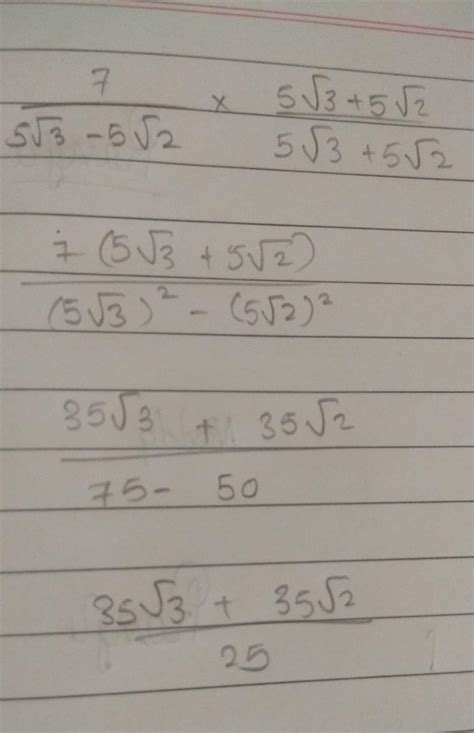 7/(5√3 - 5√2) × (5√3 + 5√2)/(5√3 + 5√2)
7(5√3 + 5√2)/((5√3)² - (5√2)²)
(35√3 + 35√2)/(75 - 50)
(35√3 + 35√2)/25